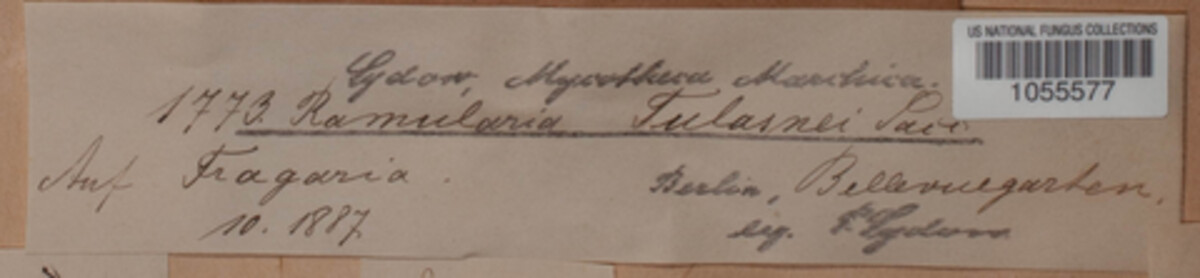 Sydow, Mycotheca Marchica.
US NATIONAL FUNGUS COLLECTIONS
1055577
1773. Ramularia Tulasnei Sacc.
Auf Fragaria.
Berlin, Bellevuegarten.
10. 1887
leg. P. Sydow